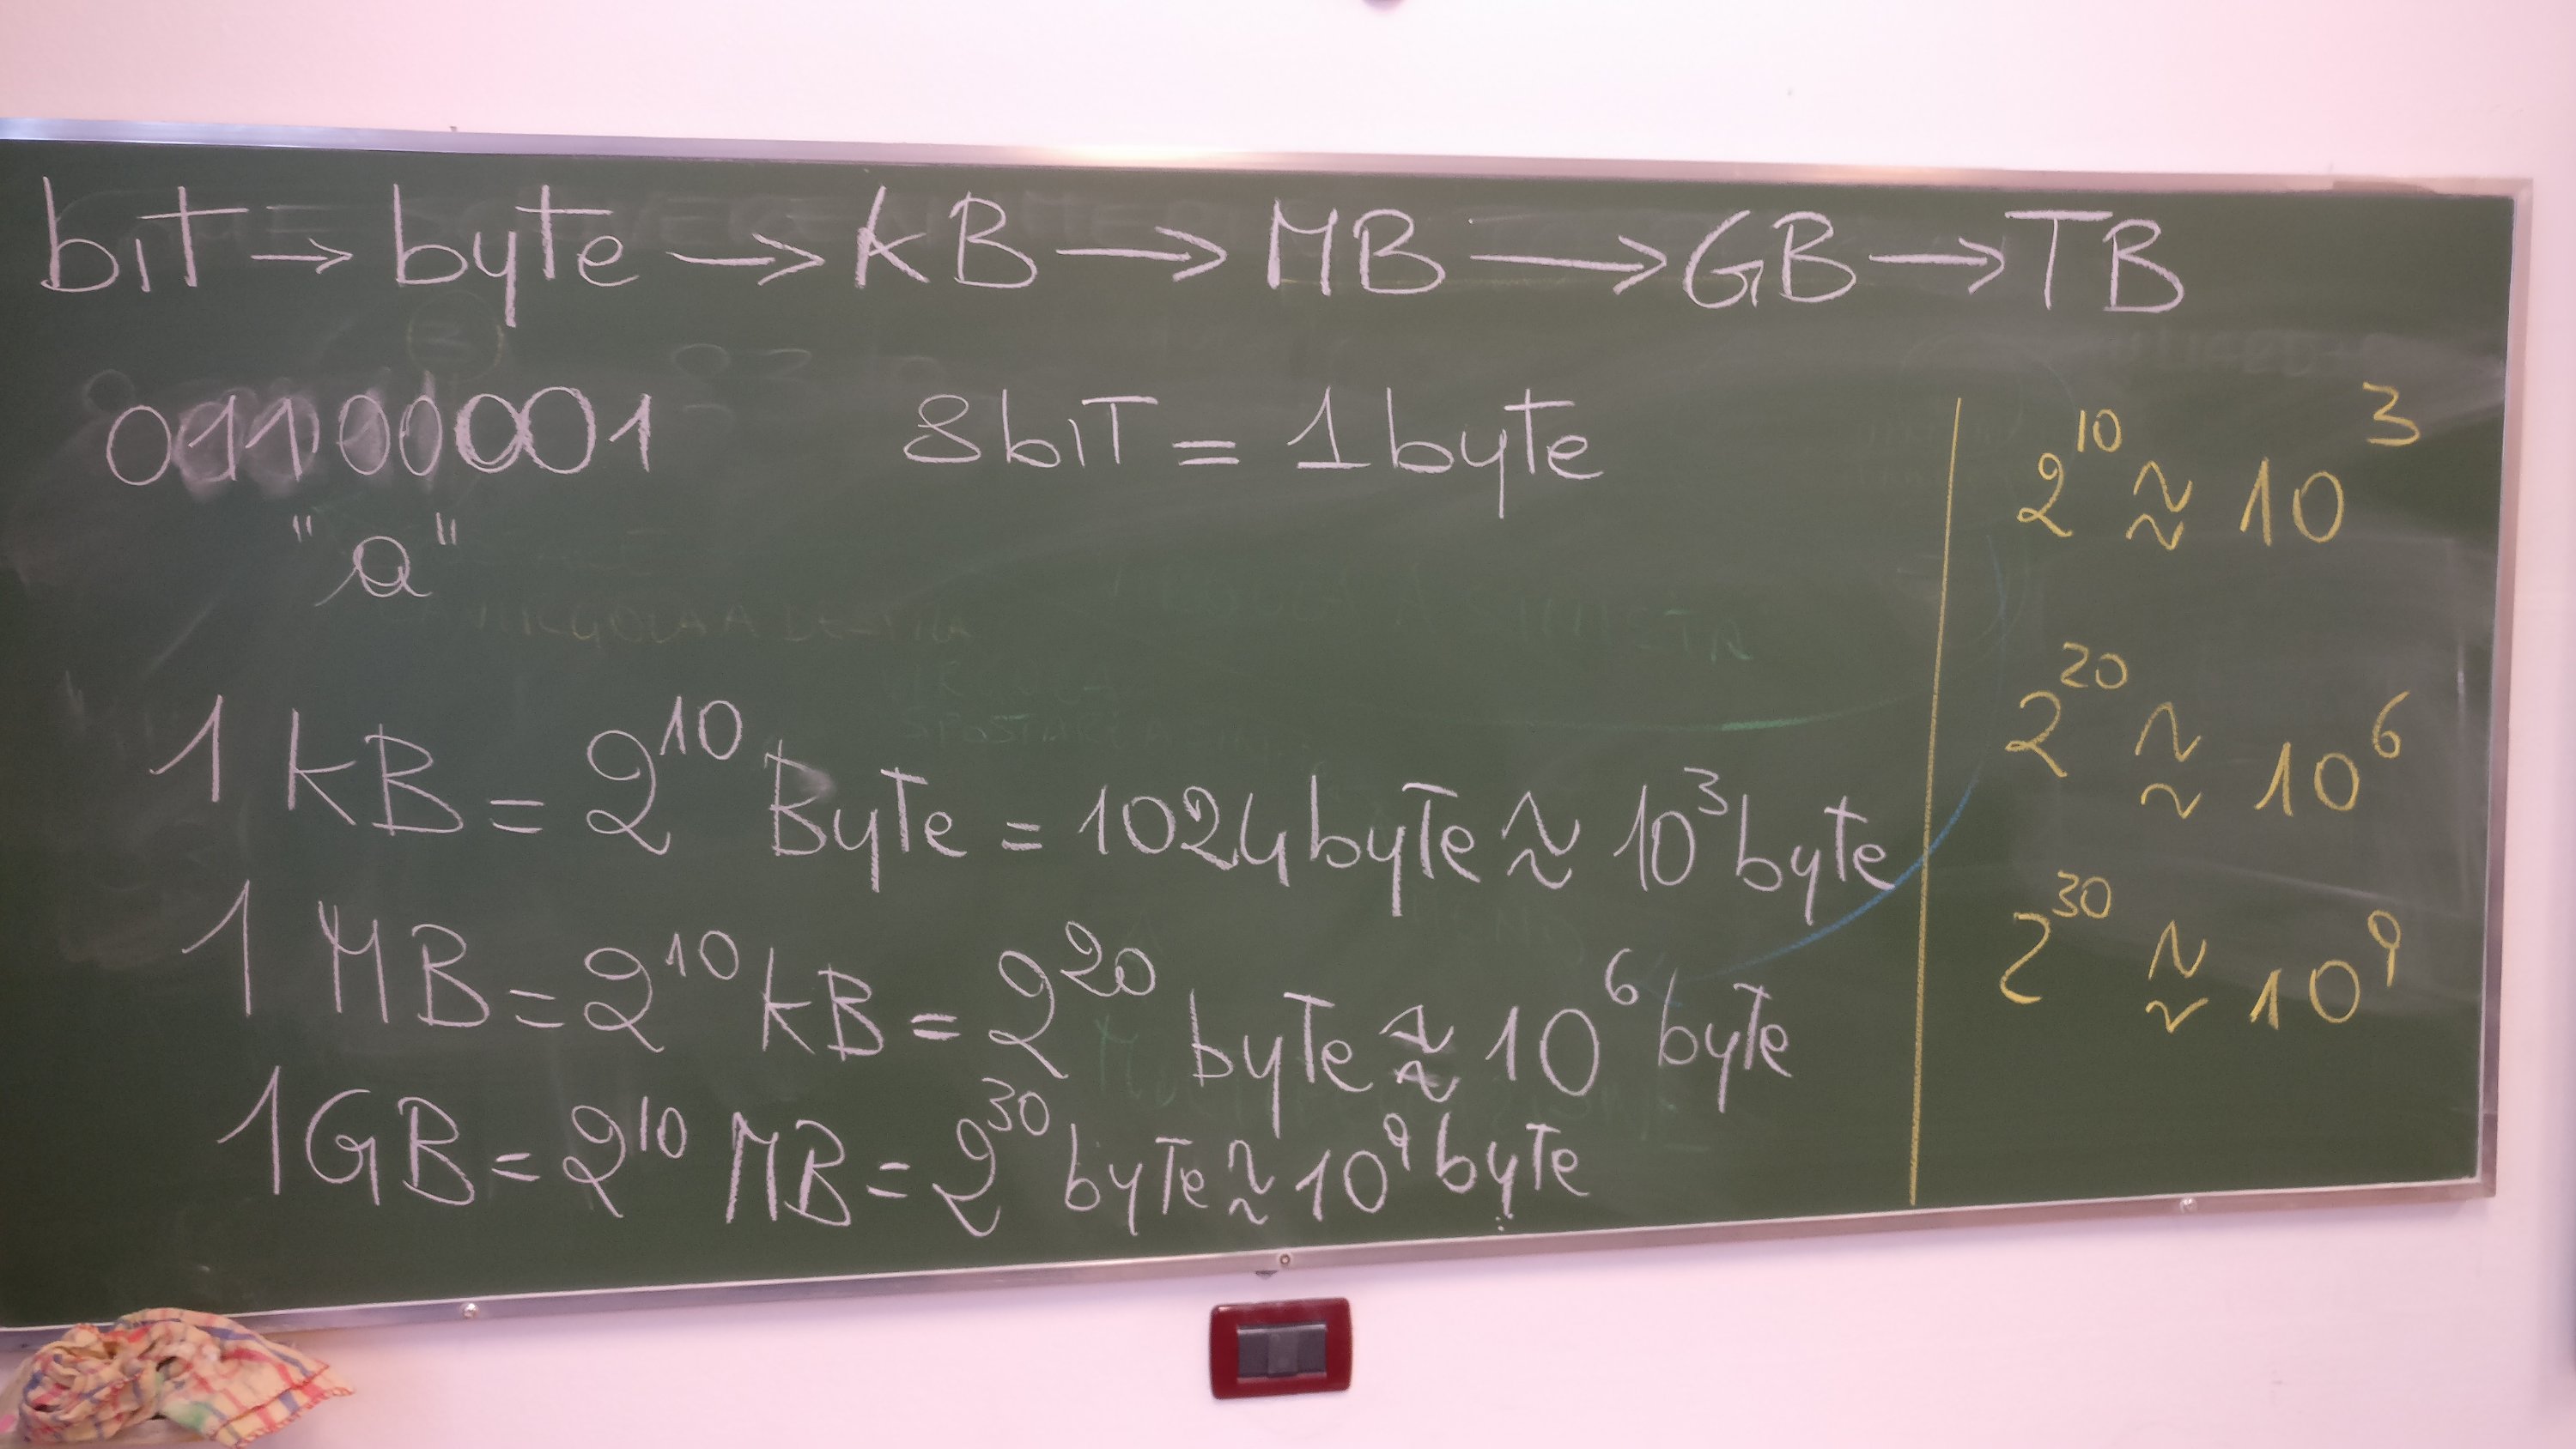 bit → byte → KB → MB → GB → TB
01100001 8 bit = 1 byte
"a"
1 KB = 2¹⁰ Byte = 1024 byte ≈ 10³ byte
1 MB = 2¹⁰ KB = 2²⁰ byte ≈ 10⁶ byte
1 GB = 2¹⁰ MB = 2³⁰ byte ≈ 10⁹ byte
2¹⁰ ≈ 10³
2²⁰ ≈ 10⁶
2³⁰ ≈ 10⁹